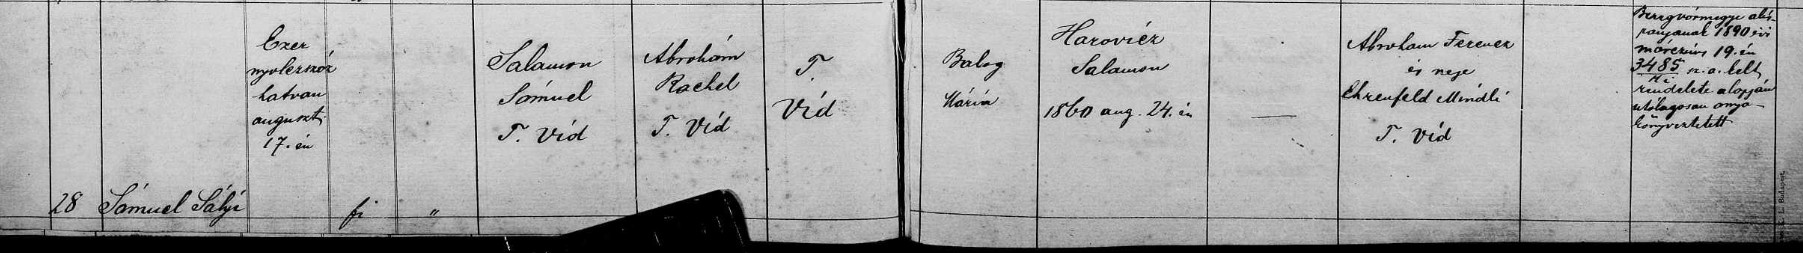 28
Sámuel Sályi
Ezer
nyolczszáz
hatvan
auguszt.
17. én
fi
"
Salamon
Sámuel
T. Vid
Abrahám
Rachel
T. Vid
T.
Vid
Balog
Mária
Harovicz
Salamon
1860 aug. 24. én
—
Abraham Ferencz
és neje
Ehrenfeld Mindli
T. Vid
Beregvármegye alis-
pánjának 1890 évi
márczius 19. én
3485 sz. a. kelt
rendelete alapján
utólagosan anya-
könyveztetett